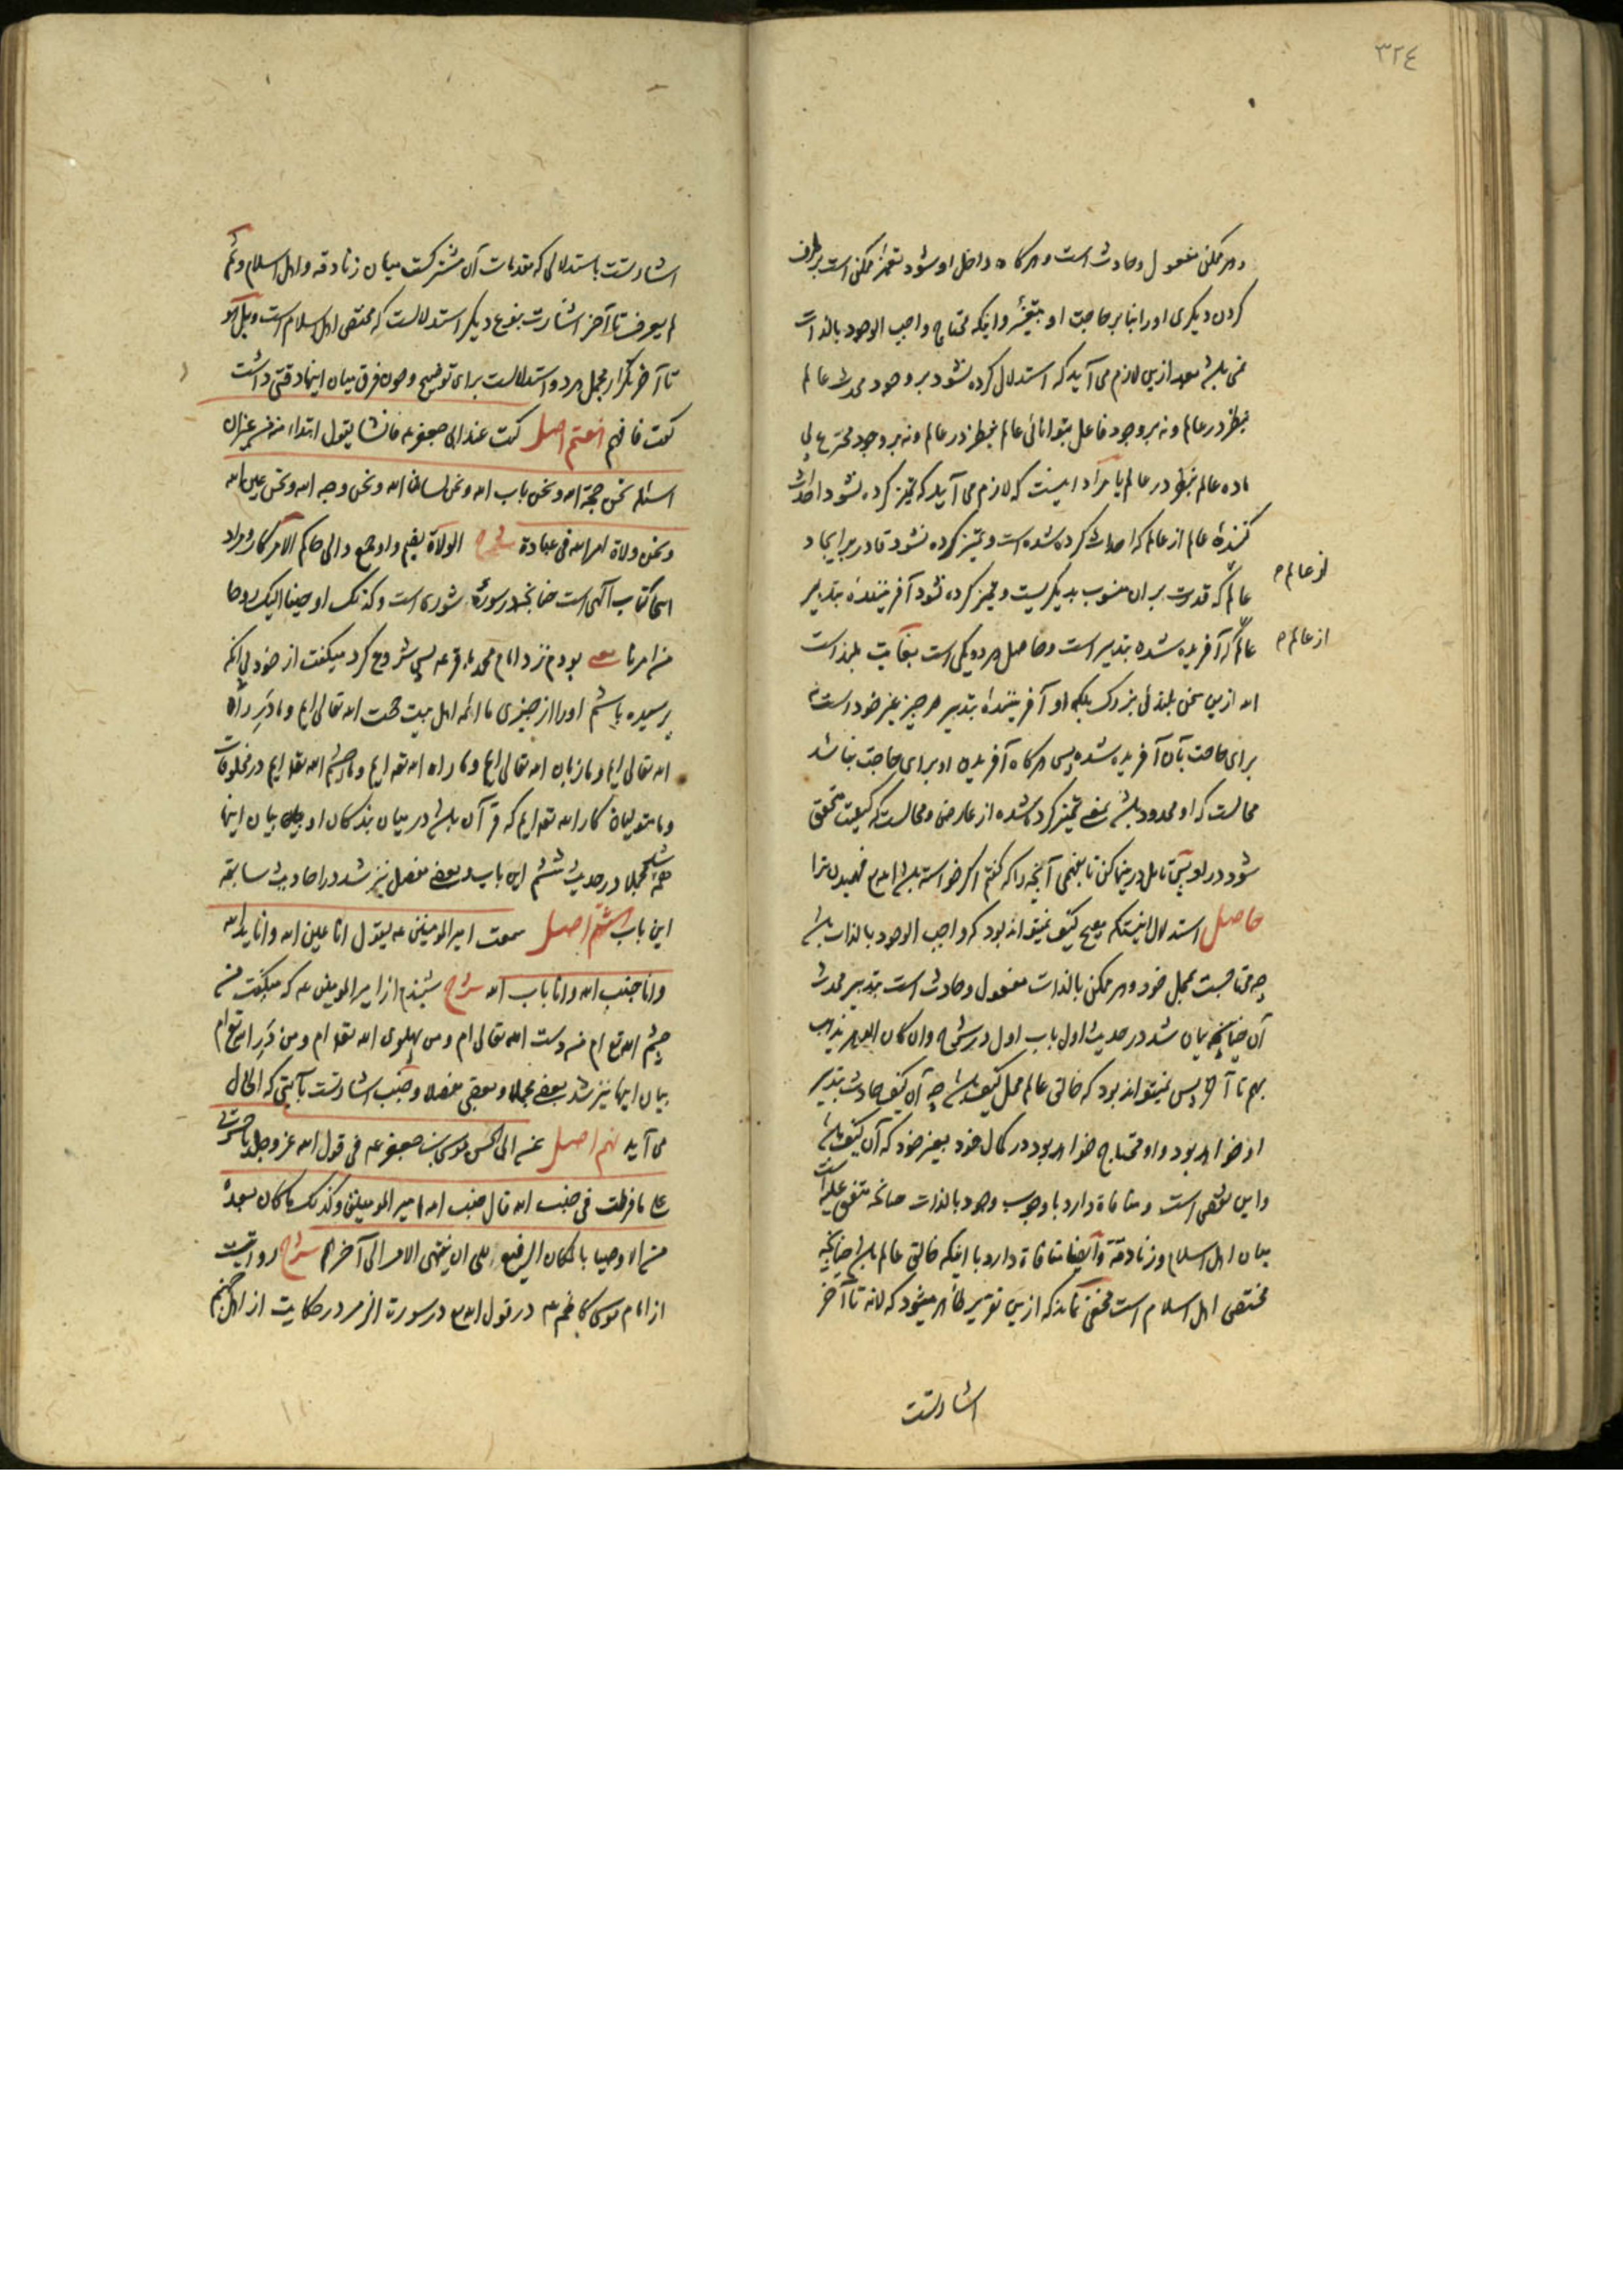 ٣٢٤
و هر ممکن مفعول و حادث است و هر کاه داخل او شود تغیر ممکن است برطرف
کردن دیکری او را بنا بر حاجت او و اینکه محتاج واجب الوجود بالذات
نمی باشد بعد ازین لازم می آید که استدلال کرده نشود بر وجود محدث عالم
بنظر در عالم و نه بر وجود فاعل بتوانائی عالم بنظر در عالم و نه بر وجود مخترع بی
ماده عالم بنظر در عالم یا مراد اینست که لازم می آید که تمیز کرده نشود احداث
کنندهٔ عالم از عالم که احداث کرده شده است و تمیز کرده نشود قادر بر ایجاد
از عالم
عالم که قدرت بر آن منسوب بدیکریست و تمیز کرده نشود آفرینندهٔ بتدبیر
از عالم
عالم که آفریده شده بتدبیر است و حاصل هر دو یکی است بغایت بلند است
الله ازین سخن بلندئ بزرک بلکه او آفرینندهٔ بتدبیر هر چیز غیر خود است نه
برای حاجت بآن آفریده شده پس هر کاه آفریدن او برای حاجت نباشد
محالست که او محدود باشد بمعنی تمیز کرده شده از عارضی و محالست که کیفیت متحقق
شود در او پس تامل درینها کن تا بفهمی آنچه را که کفتم اکر خواسته باشد الله فهمیدن ترا
حاصل استدلال اینستکه هیچ کیف نمیتواند بود که واجب الوجود بالذات باشد
چه محتاجست بمحل خود و هر ممکن بالذات مفعول و حادث است بتدبیر محدث
آن چنانچه بیان شد در حدیث اول باب اول در شرح وان کان الدهر یذهب
بهم تا آخر پس نمیتواند بود که خالق عالم محل کیف باشد چه آن کیف حادث بتدبیر
او خواهد بود و او محتاج خواهد بود در کمال خود بغیر خود که آن کیف باشد
و این نقص است و منافاة دارد با وجوب وجود بالذات چنانچه متفق علیه است
میان اهل اسلام و زنادقة و ایضا منافاة دارد با اینکه خالق عالم باشد چنانچه
مختص اهل اسلام است مخفی نماند که ازین تقریر ظاهر میشود که لانه تا آخر
اشارتست
اشارتست باستدلالی که مقدمات آن مشترکست میان زنادقه و اهل اسلام و ثم
لم یعرف تا آخر اشارت بنوع دیکر استدلالست که مختص اهل اسلام است و بل هو
تا آخر تکرار مجمل هر دو استدلالست برای توضیح و چون فرق میان اینها دقتی داشت
کفت فافهم هفتم اصل کنت عند ابی جعفر ع فانشا یقول ابتداء منه من غیر ان
اسئله نحن حجة الله و نحن باب الله و نحن لسان الله و نحن وجه الله و نحن عین الله
و نحن ولاة امر الله فی عباده شرح الولاة بضم واو جمع والی حاکم الامر کار و مراد
اینجا کتاب الهی است چنانچه در سورهٔ شوری است و کذلک اوحینا الیک روحا
من امرنا یعنی بودم نزد امام محمد باقر ع پس شروع کرد میکفت از خود بی آنکه
پرسیده باشم او را از چیزی ما ائمه اهل بیت حجت الله تعالی ایم و ما در راه
الله تعالی ایم و ما زبان الله تعالی ایم و ما راه الله تع ایم و ما چشم الله تع ایم در مخلوقات
و ما متولیان کار الله تع ایم که قرآن باشد در میان بندکان او بیان اینها
همه مجملا در حدیث ششم این باب و بعض مفصل نیز شد در احادیث سابقه
این باب هشتم اصل سمعت امیر المومنین ع یقول انا عین الله و انا ید الله
و انا جنب الله و انا باب الله شرح شنیدم از امیر المومنین ع که میکفت من
چشم الله تع ام من دست الله تعالی ام و من پهلوی الله تع ام و من در الله تع ام
بیان اینها نیز شد بعضی مجملا و بعضی مفصلا و جنب اشارتست بآیتی که الحال
می آید نهم اصل عن ابی الحسن موسی بن جعفر ع فی قول الله عز و جل یا حسرتی
علی ما فرطت فی جنب الله قال جنب الله امیر المومنین و کذلک ما کان بعده
من الاوصیا بالمکان الرفیع الی ان ینتهی الامر الی آخرهم شرح روایتست
از امام موسی کاظم ع در قول الله در سورت الزمر در حکایت از اهل جهنم